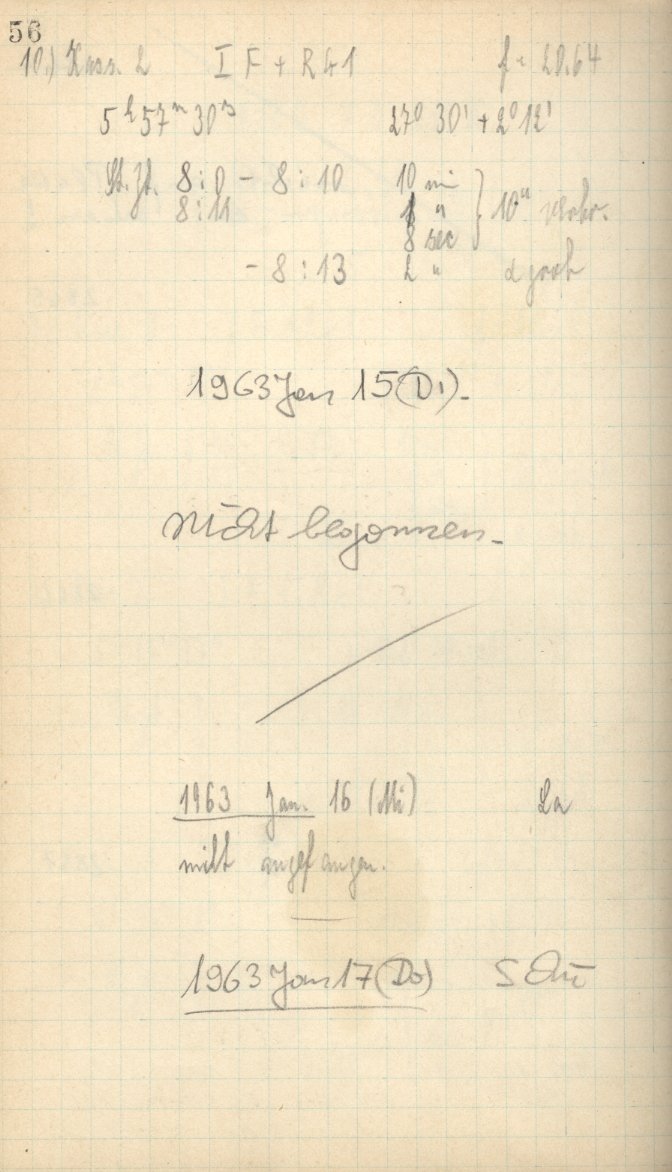 56
10.) Kass. 2 I F + RG1 f = 20.64
5ʰ 57ᵐ 30ˢ 27° 30' + 2° 12'
St. Zt. 8:0 - 8:10 10 mi
8:11 1 " } 10ᵐ
8 sec
- 8:13 2 "
1963 Jan 15 (Di).
Nicht begonnen.
1963 Jan. 16 (Mi) La
nicht angefangen.
1963 Jan 17 (Do)